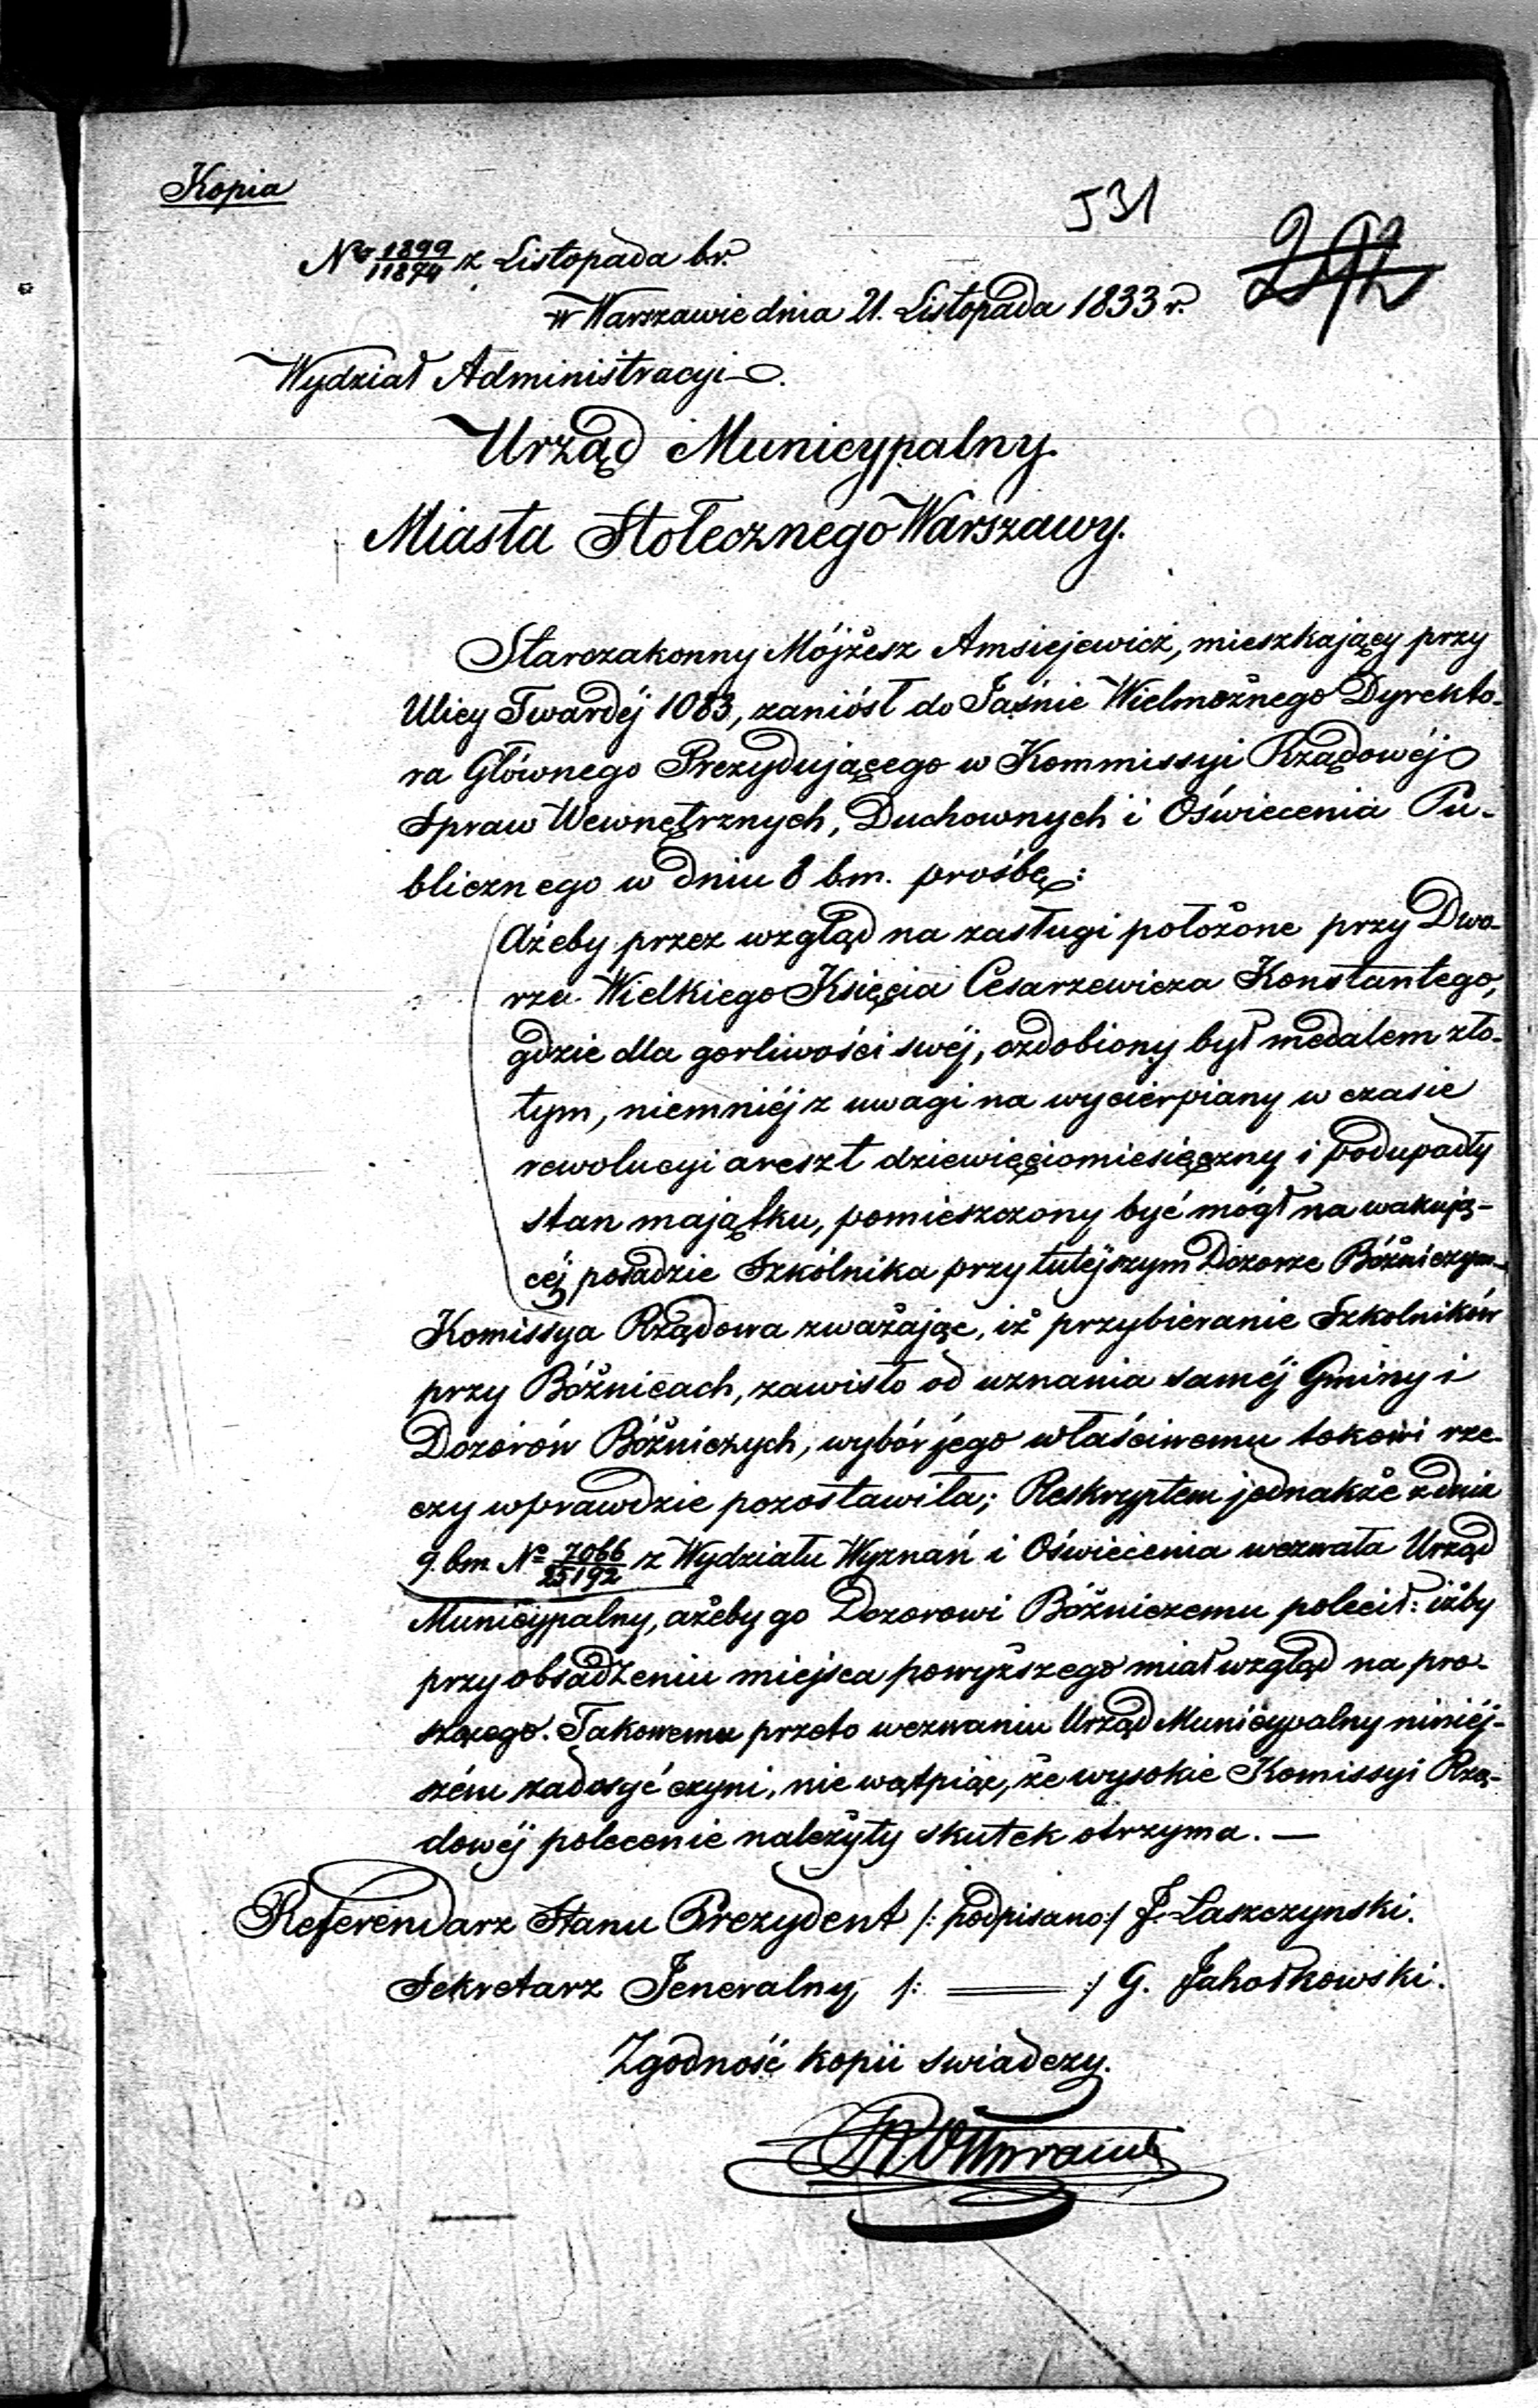 Kopia
531
292
No 1899/11874 z Listopada br.
w Warszawie dnia 21. Listopada 1833 r.
Wydział Administracyi.
Urząd Municypalny.
Miasta Stołecznego Warszawy.
Starozakonny Mójżesz Amsiejewicz, mieszkający przy
Ulicy Twardéj 1083, zaniósł do Jaśnie Wielmożnego Dyrekto-
ra Głównego Prezydującego w Kommissyi Rządowéj
Spraw Wewnętrznych, Duchownych i Oświecenia Pu-
blicznego w dniu 8 b.m. prośbę:
Ażeby przez wzgląd na zasługi położone przy Dwo-
rze Wielkiego Księcia Cesarzewicza Konstantego,
gdzie dla gorliwości swéj, ozdobiony był medalem zło-
tym, niemniéj z uwagi na wycierpiany w czasie
rewolucyi areszt dziewięciomiesięczny i podupadły
stan majątku, pomieszczony być mógł na wakują-
céj posadzie Szkólnika przy tutéjszym Dozorze Bóżniczym.
Komissya Rządowa zważając, iż przybieranie Szkolników
przy Bóżnicach, zawisło od uznania saméj Gminy i
Dozorów Bóżniczych, wybór jego właściwemu tokowi rze-
czy wprawdzie pozostawiła; Reskryptem jednakże z dnia
9. bm. No 7066/25192 z Wydziału Wyznań i Oświecenia wezwała Urząd
Municypalny, ażeby go Dozorowi Bóżniczemu polecił: iżby
przy obsadzeniu miejsca powyższego miał wzgląd na pro-
szącego. Takowemu przeto wezwaniu Urząd Municypalny niniéj-
szém zadosyć czyni, nie wątpiąc, że wysokie Komissyi Rzą-
dowéj polecenie należyty skutek otrzyma. —
Referendarz Stanu Prezydent /: podpisano :/ J. Laszczynski.
Sekretarz Jeneralny /: ═══ :/ G. Jahołkowski.
Zgodność kopii swiadczy.